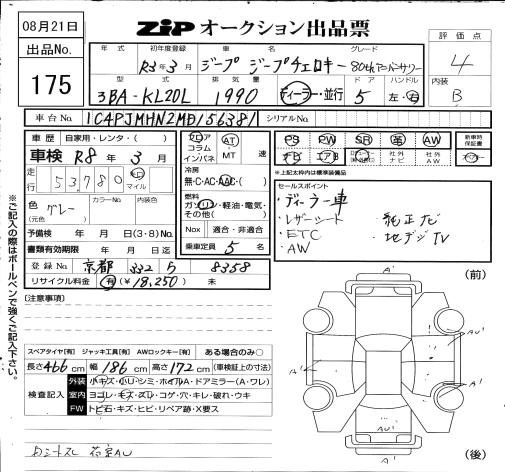 08月21日
ZIP オークション出品票
出品No. 175
評価点 4
内装 B
年式 初年度登録 車名 グレード
R3年3月 ジープ ジープチェロキー 80thアニバーサリー
型式 排気量 ドア ハンドル
3BA-KL20L 1990 ディーラー・並行 5 左・右
車台No. 1C4PJMHN2MD156381 シリアルNo.
車歴 自家用・レンタ・( )
車検 R8年 3月
走行 53,780 km マイル
色(元色) グレー カラーNo. 内装色
予備検 年 月 日(3・8)No.
書類有効期限 年 月 日迄
登録No. 京都 332 ら 8358
リサイクル料金 有(¥18,250) 無
フロア コラム インパネ AT MT 速
冷房 無・C・AC・AAC・( )
燃料 ガソリン・軽油・電気・その他( )
Nox 適合・非適合
乗車定員 5名
PS PW SR 革 AW 新車時保証書
ナビ エアB 社外ナビ 社外AW
※上記太枠内は標準装備品
セールスポイント
・ディーラー車
・レザーシート ・純正ナビ
・ETC ・地デジTV
・AW
注意事項
スペアタイヤ[有] ジャッキ工具[有] AWロックキー[有] ある場合のみ○
長さ466cm 幅186cm 高さ172cm (車検証上の寸法)
検査記入
外装 小キズ・小U・シミ・ホイルA・ドアミラー(A・ワレ)
室内 ヨゴレ・キズ・スレ・コゲ・穴・キレ・破れ・ウキ
FW トビ石・キズ・ヒビ・リペア跡・X要ス
荷室AU
(前)
A'
A'
AU'
AU'
A'
(後)
※ご記入の際はボールペンで強くご記入下さい。